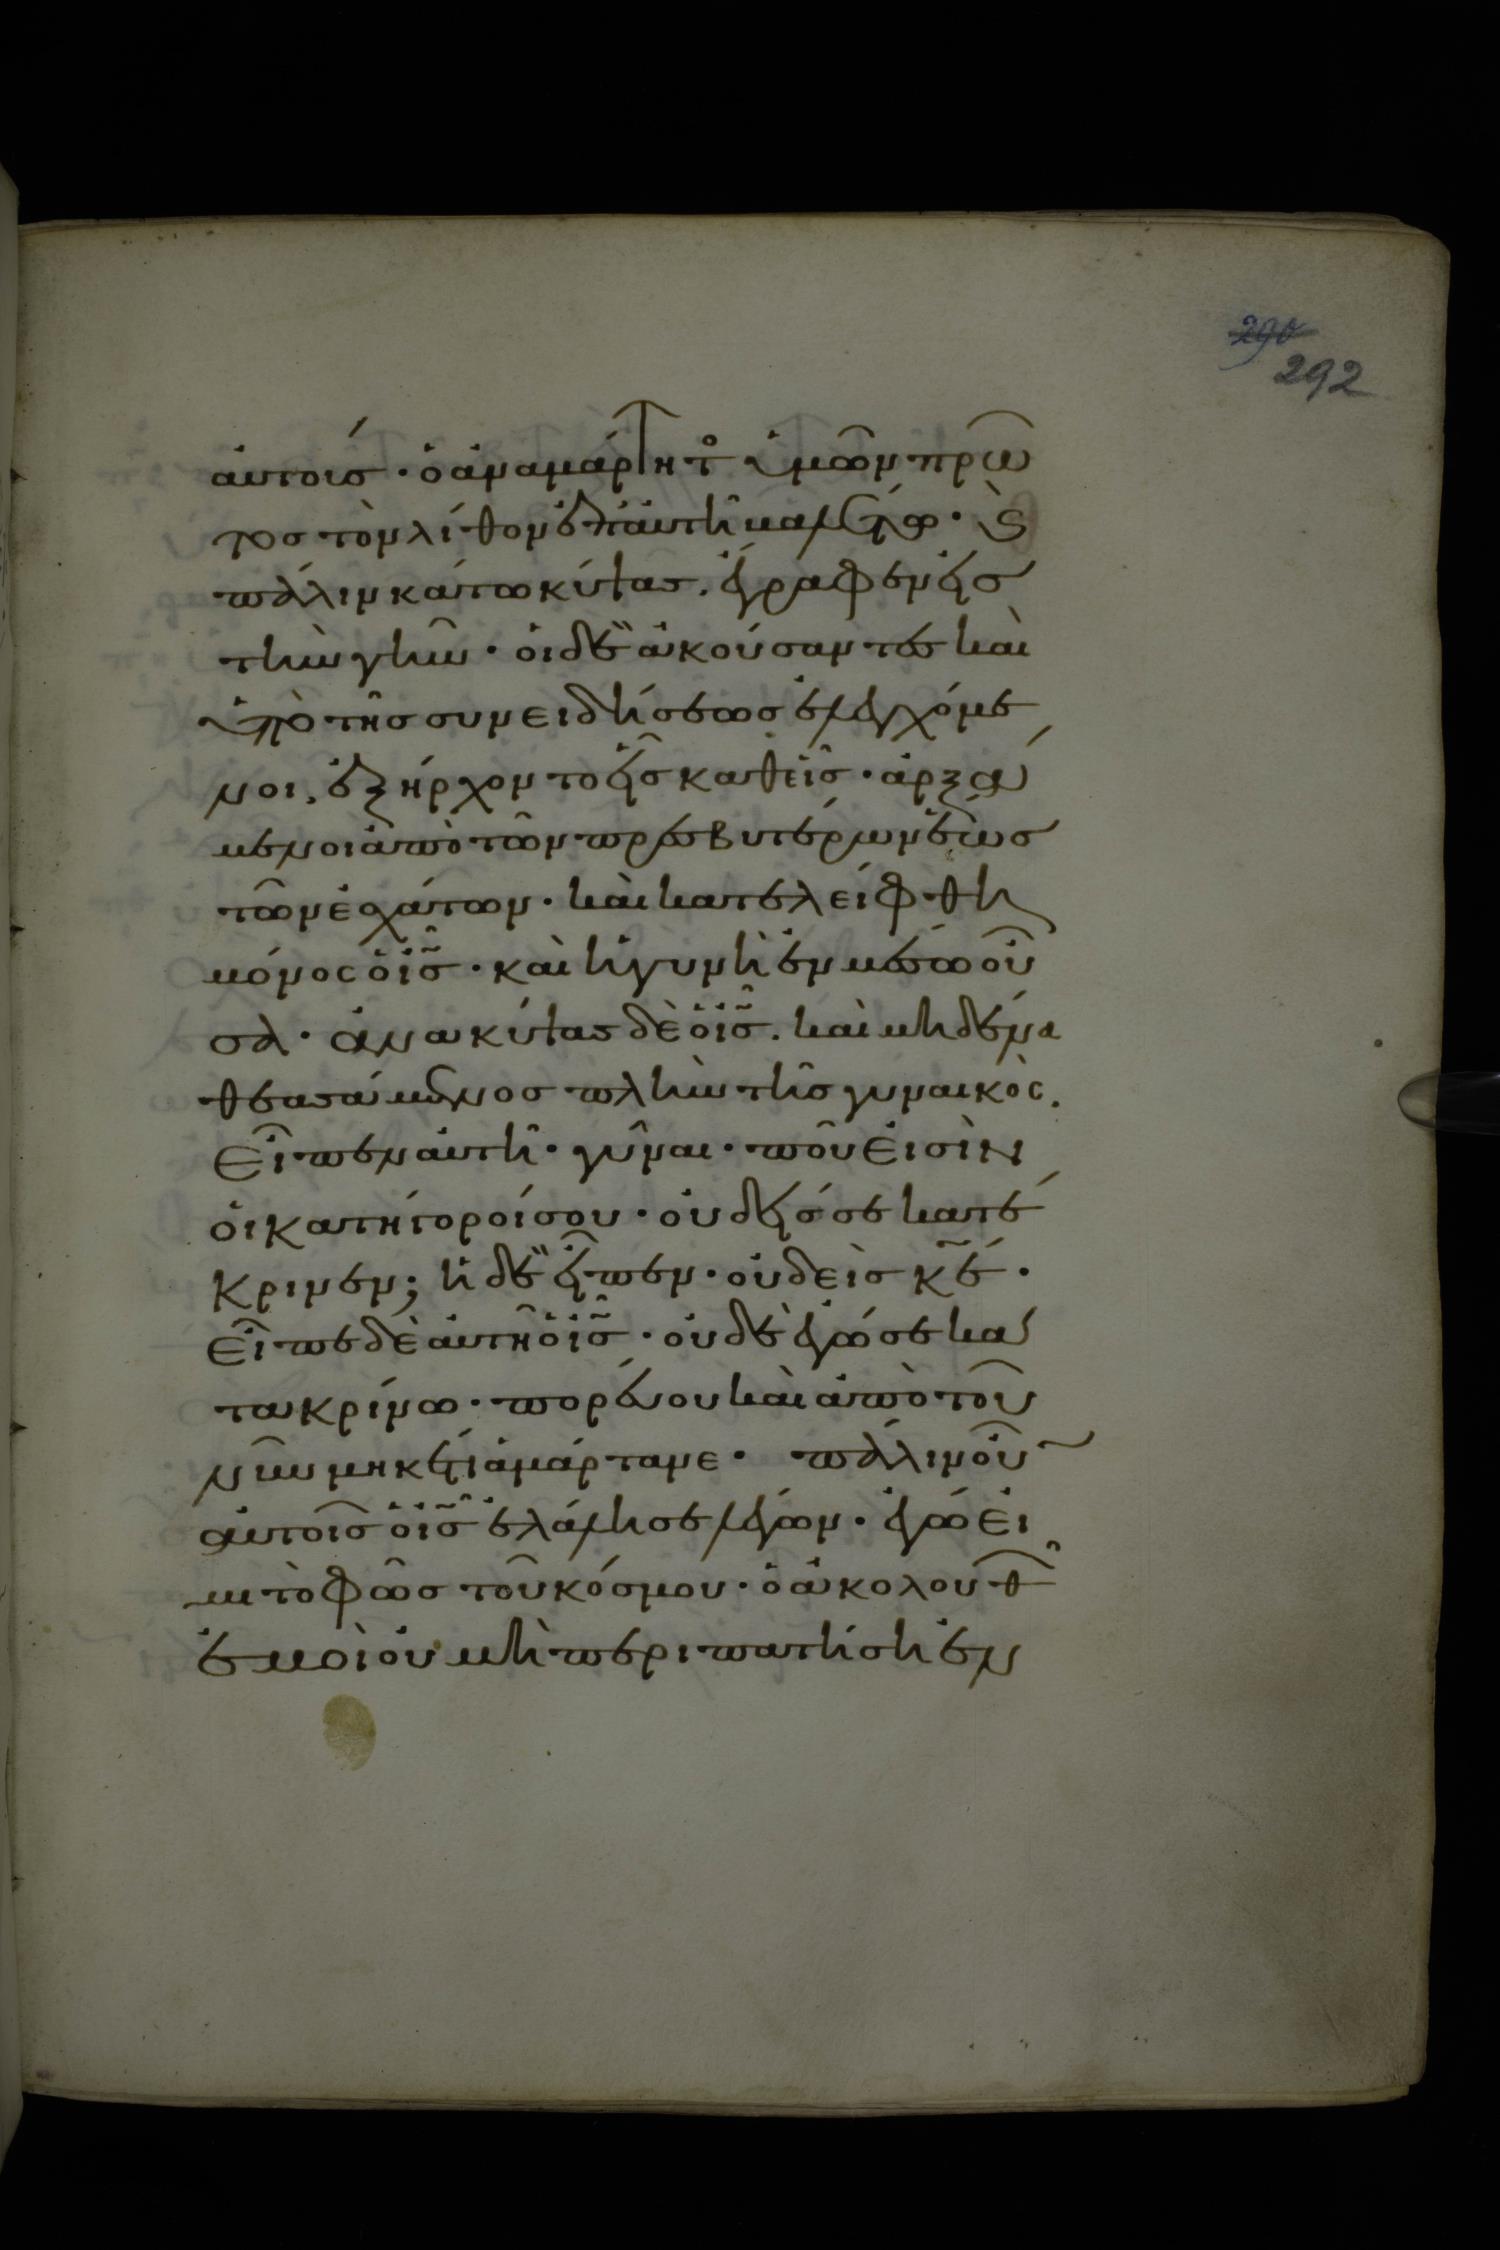 290
292
αὐτοῖς · ὁ ἀναμάρτητος ὑμῶν πρῶ
τος τὸν λίθον ἐπ' αὐτῆ βαλέτω · καὶ
πάλιν κάτω κύψας. ἔγραφεν εἰς
τὴν γῆν · οἱ δὲ ἀκούσαντες καὶ
ὑπὸ τῆς συνειδήσεως ἐλεγχόμε
νοι, ἐξήρχοντο εἷς καθεῖς · ἀρξά
μενοι ἀπὸ τῶν πρεσβυτέρων ἕως
τῶν ἐσχάτων · καὶ κατελείφθη
μόνος ὁ ις · καὶ ἡ γυνὴ ἐν μέσω οὖ
σα · ἀνακύψας δὲ ὁ ις. καὶ μηδένα
θεασάμενος πλὴν τῆς γυναικὸς.
εἶπεν αὐτῆ · γῦναι · ποῦ εἰσὶν
οἱ κατήγοροί σου · οὐδείς σε κατέ
κρινεν; ἡ δὲ εἶπεν · οὐδεὶς κε ·
εἶπε δὲ αὐτῆ ὁ ις · οὐδὲ ἐγώ σε κα
τακρίνω · πορεύου καὶ ἀπὸ τοῦ
νῦν μηκέτι ἁμάρτανε · πάλιν οὖν
αὐτοῖς ὁ ις ἐλάλησε λέγων · ἐγώ εἰ
μι τὸ φῶς τοῦ κόσμου · ὁ ἀκολουθῶν
ἐμοὶ οὐ μὴ περιπατήση ἐν